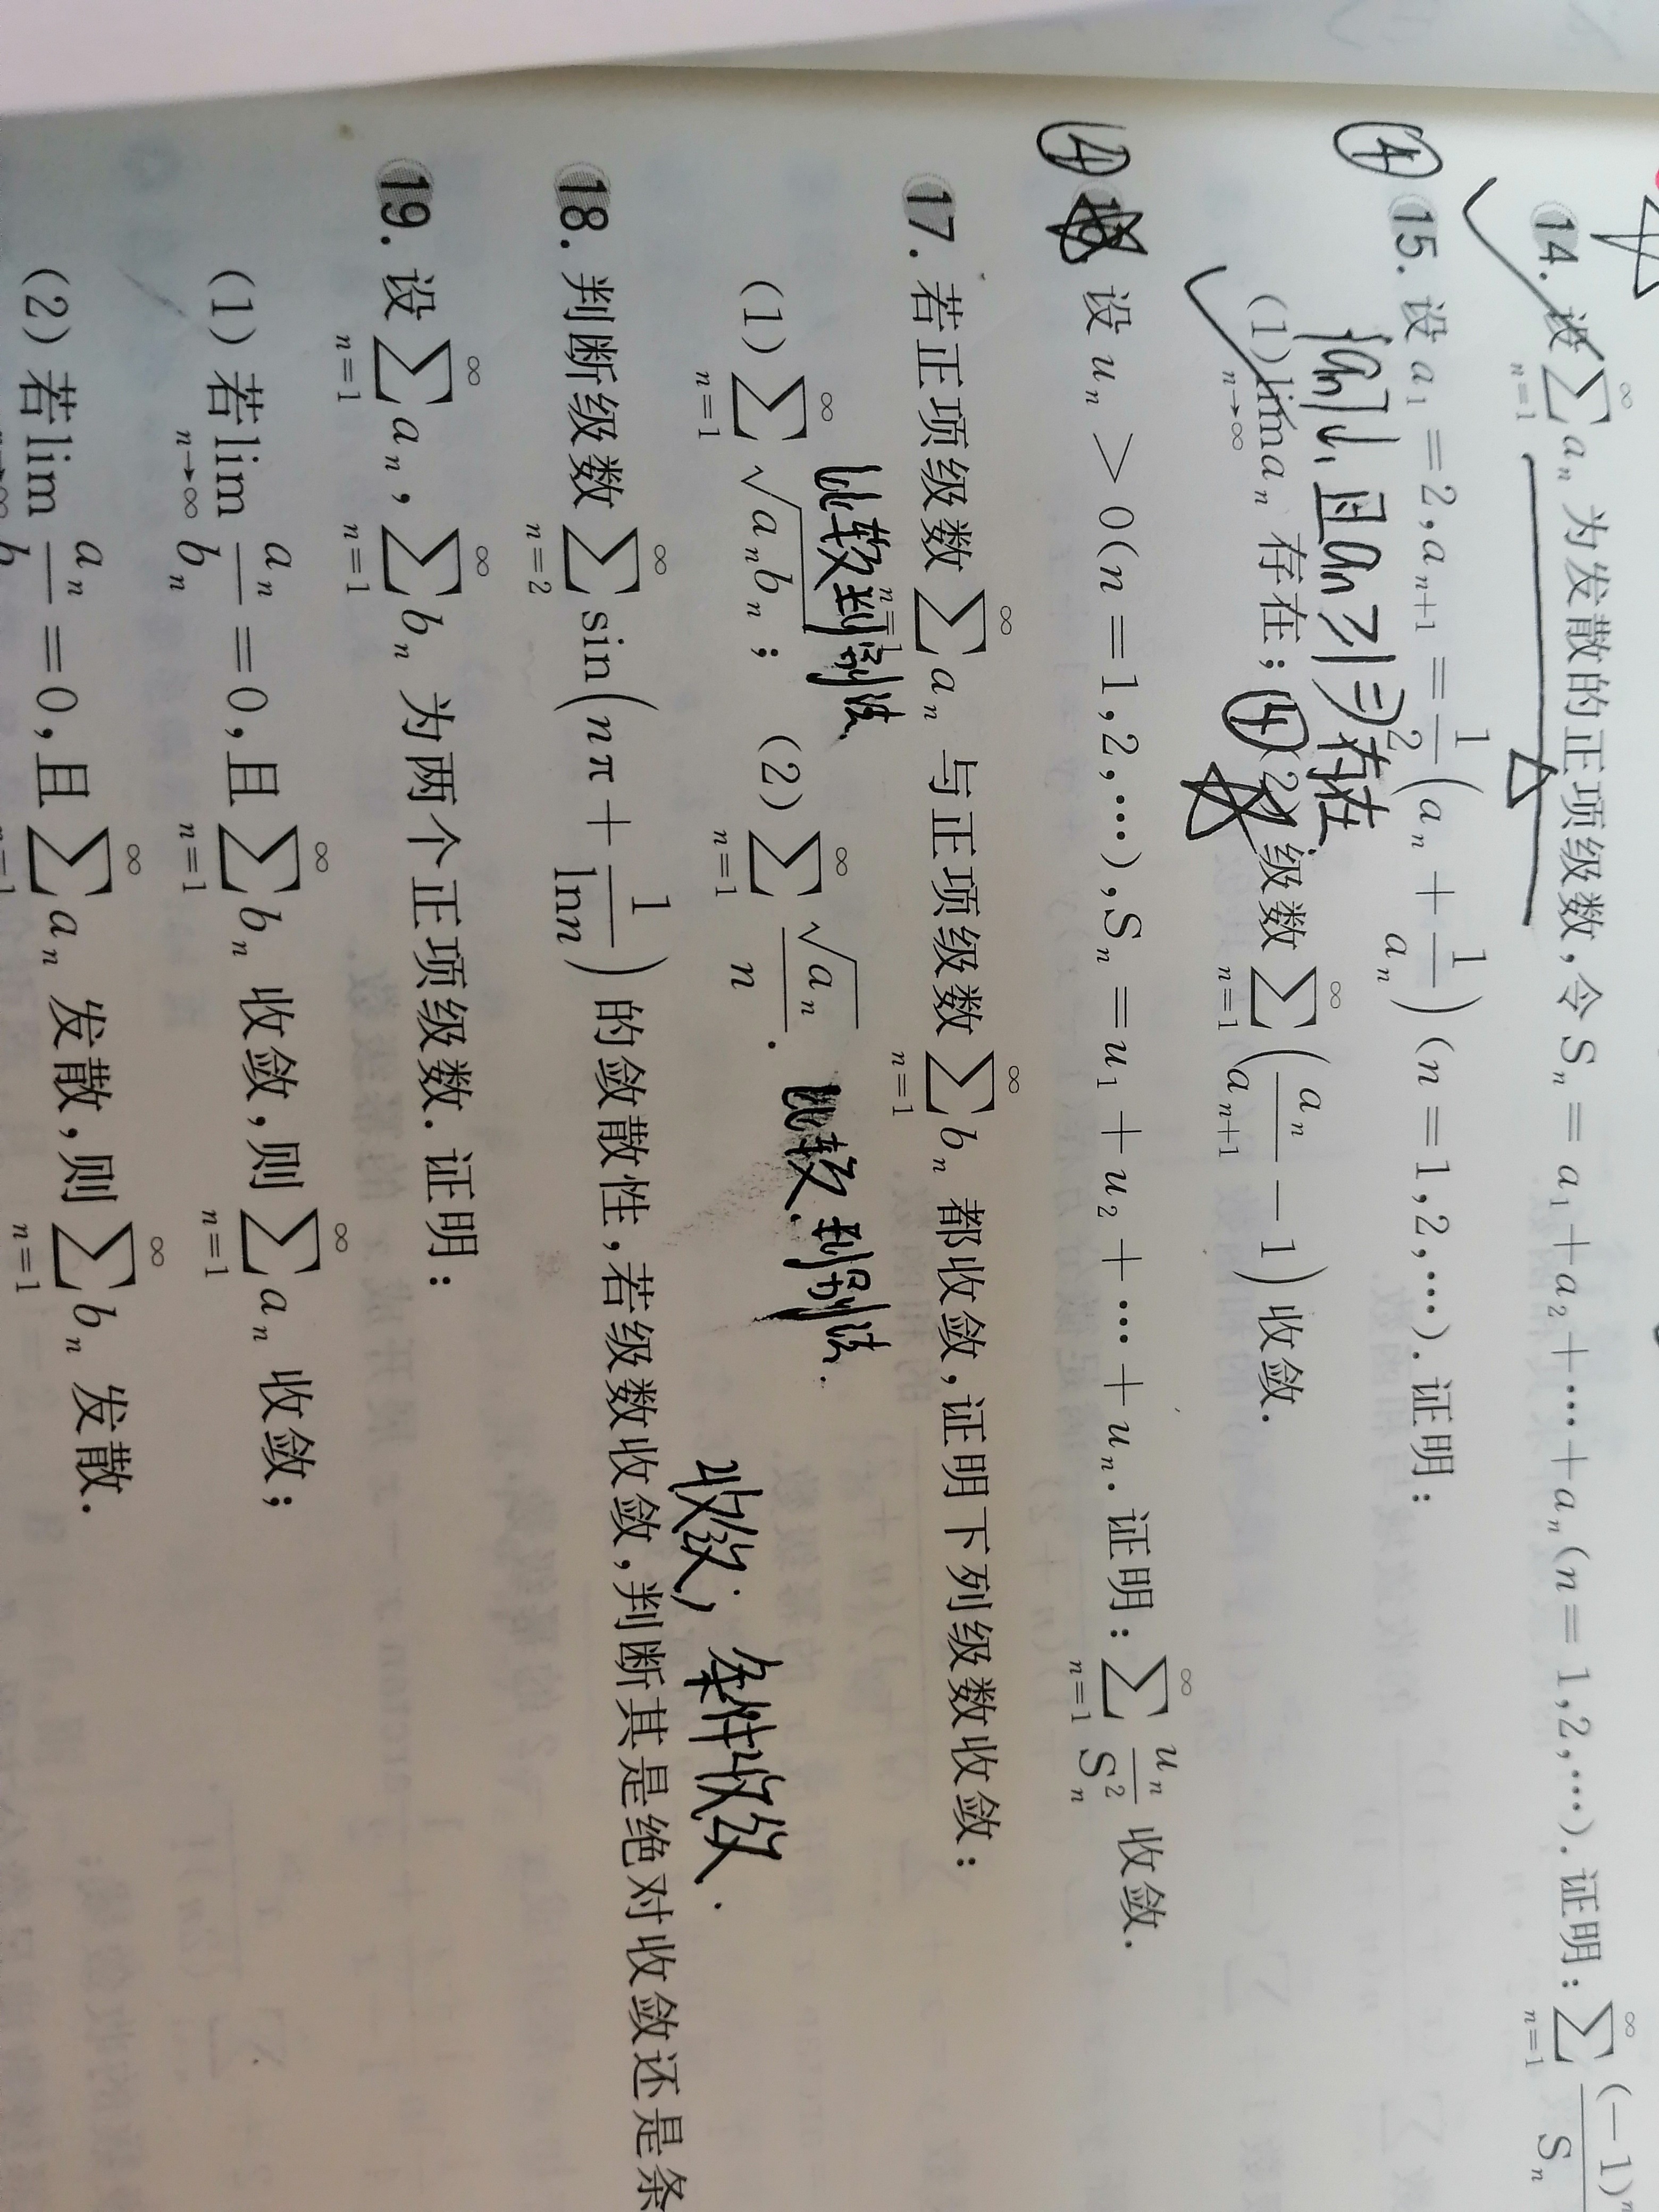 14. 设 $\sum_{n=1}^{\infty} a_n$ 为发散的正项级数,令 $S_n = a_1 + a_2 + \cdots + a_n (n=1,2,\cdots)$. 证明: $\sum_{n=1}^{\infty} \frac{(-1)^n}{S_n}$
④ 15. 设 $a_1 = 2, a_{n+1} = \frac{1}{2}\left(a_n + \frac{1}{a_n}\right) (n=1,2,\cdots)$. 证明:
{an}↓, 且an≥1 ⇒ 存在
(1) $\lim_{n\to\infty} a_n$ 存在; ④ (2) 级数 $\sum_{n=1}^{\infty} \left(\frac{a_n}{a_{n+1}} - 1\right)$ 收敛.
④ 设 $u_n > 0 (n=1,2,\cdots), S_n = u_1 + u_2 + \cdots + u_n$. 证明: $\sum_{n=1}^{\infty} \frac{u_n}{S_n^2}$ 收敛.
17. 若正项级数 $\sum_{n=1}^{\infty} a_n$ 与正项级数 $\sum_{n=1}^{\infty} b_n$ 都收敛,证明下列级数收敛:
比较判别法. 比较判别法.
(1) $\sum_{n=1}^{\infty} \sqrt{a_n b_n}$; (2) $\sum_{n=1}^{\infty} \frac{\sqrt{a_n}}{n}$.
收敛, 条件收敛.
18. 判断级数 $\sum_{n=2}^{\infty} \sin\left(n\pi + \frac{1}{\ln n}\right)$ 的敛散性,若级数收敛,判断其是绝对收敛还是条
19. 设 $\sum_{n=1}^{\infty} a_n, \sum_{n=1}^{\infty} b_n$ 为两个正项级数. 证明:
(1) 若 $\lim_{n\to\infty} \frac{a_n}{b_n} = 0$,且 $\sum_{n=1}^{\infty} b_n$ 收敛,则 $\sum_{n=1}^{\infty} a_n$ 收敛;
(2) 若 $\lim_{n\to\infty} \frac{a_n}{b} = 0$,且 $\sum_{n=1}^{\infty} a_n$ 发散,则 $\sum_{n=1}^{\infty} b_n$ 发散.